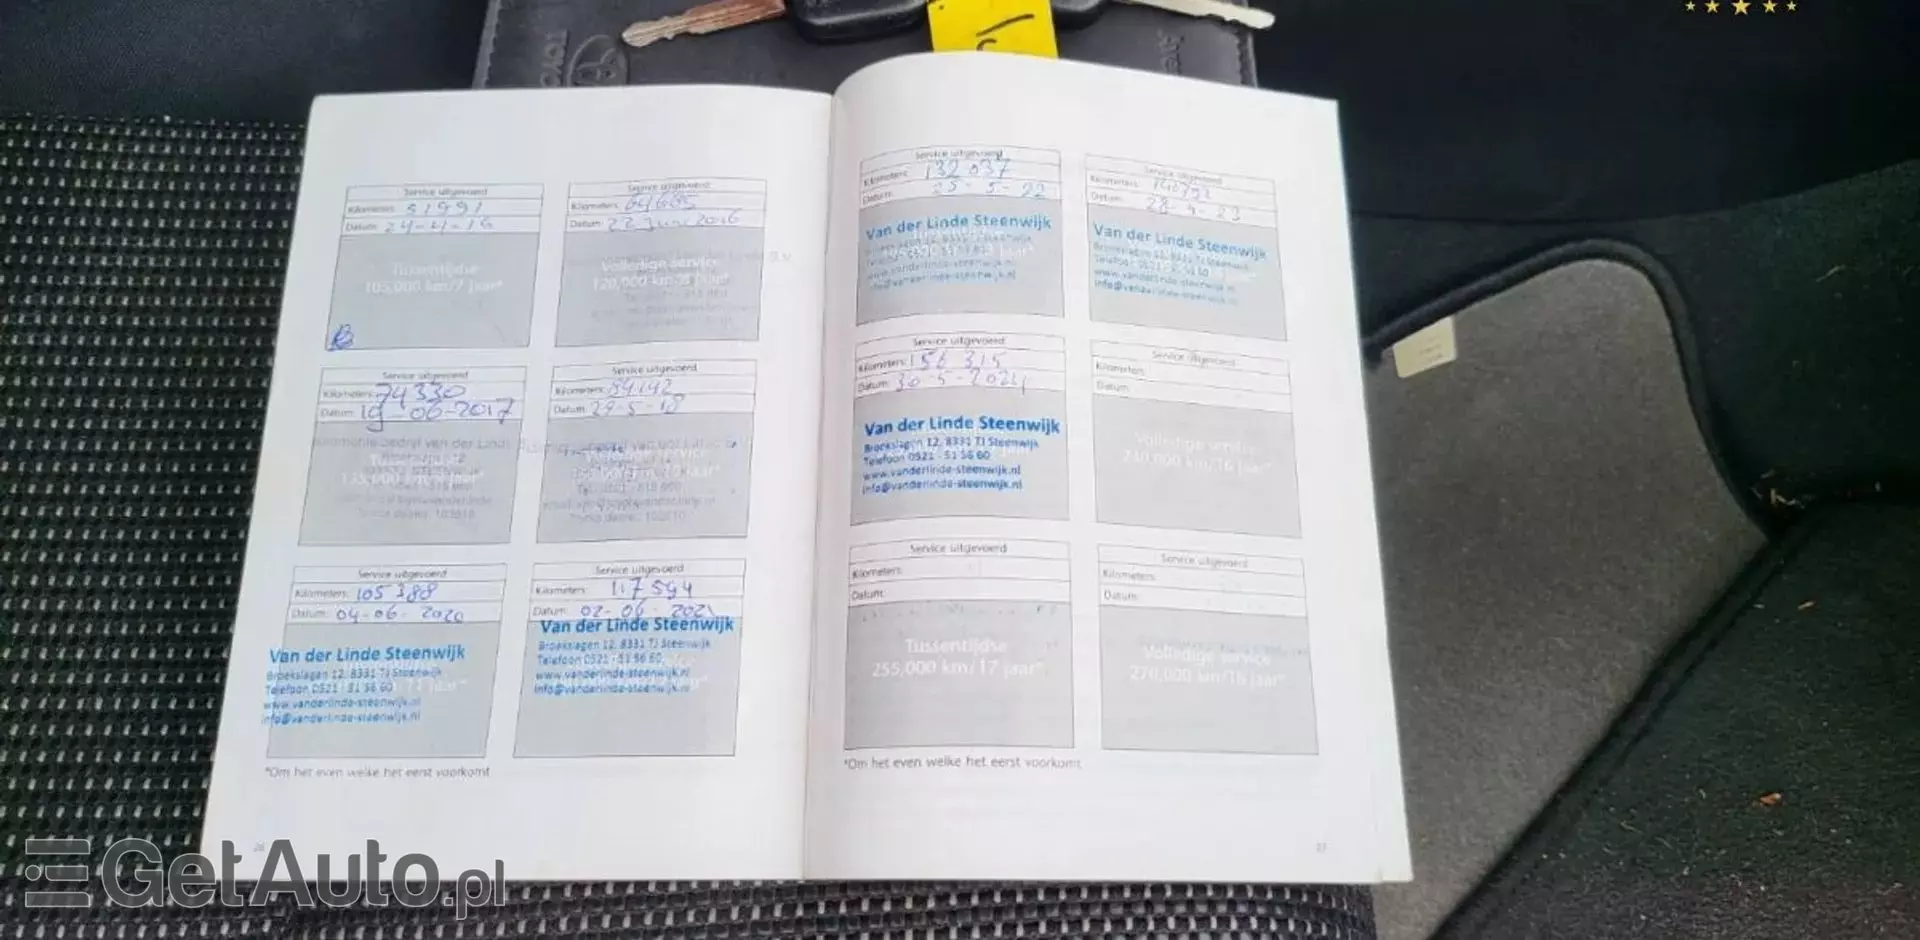 Service uitgevoerd
Kilometers: 51991
Datum: 24-4-15
Tussentijdse
105,000 km/7 jaar*
Service uitgevoerd
Kilometers: 64685
Datum: 22 Juni 2016
Volledige service
120,000 km/8 jaar*
Service uitgevoerd
Kilometers: 74330
Datum: 19-06-2017
135,000 km/9 jaar*
Service uitgevoerd
Kilometers:
Datum: 29-5-18
Service uitgevoerd
Kilometers: 105388
Datum: 04-06-2020
Van der Linde Steenwijk
Broekslagen 12, 8331 TJ Steenwijk
Telefoon 0521 - 51 56 60
www.vanderlinde-steenwijk.nl
info@vanderlinde-steenwijk.nl
Service uitgevoerd
Kilometers: 117594
Datum: 02-06-2021
Van der Linde Steenwijk
Broekslagen 12, 8331 TJ Steenwijk
Telefoon 0521 - 51 56 60
www.vanderlinde-steenwijk.nl
info@vanderlinde-steenwijk.nl
*Om het even welke het eerst voorkomt
26
Service uitgevoerd
Kilometers: 132037
Datum: 25-5-22
Van der Linde Steenwijk
Broekslagen 12, 8331 TJ Steenwijk
Telefoon 0521 - 51 56 60
www.vanderlinde-steenwijk.nl
info@vanderlinde-steenwijk.nl
Service uitgevoerd
Kilometers:
Datum: 28-4-23
Van der Linde Steenwijk
Broekslagen 12, 8331 TJ Steenwijk
Telefoon 0521 - 51 56 60
www.vanderlinde-steenwijk.nl
info@vanderlinde-steenwijk.nl
Service uitgevoerd
Kilometers: 156315
Datum: 30-5-2024
Van der Linde Steenwijk
Broekslagen 12, 8331 TJ Steenwijk
Telefoon 0521 - 51 56 60
www.vanderlinde-steenwijk.nl
info@vanderlinde-steenwijk.nl
Service uitgevoerd
Kilometers:
Datum:
Volledige service
240,000 km/16 jaar*
Service uitgevoerd
Kilometers:
Datum:
Tussentijdse
255,000 km/17 jaar*
Service uitgevoerd
Kilometers:
Datum:
Volledige service
270,000 km/18 jaar*
*Om het even welke het eerst voorkomt
27
GetAuto.pl